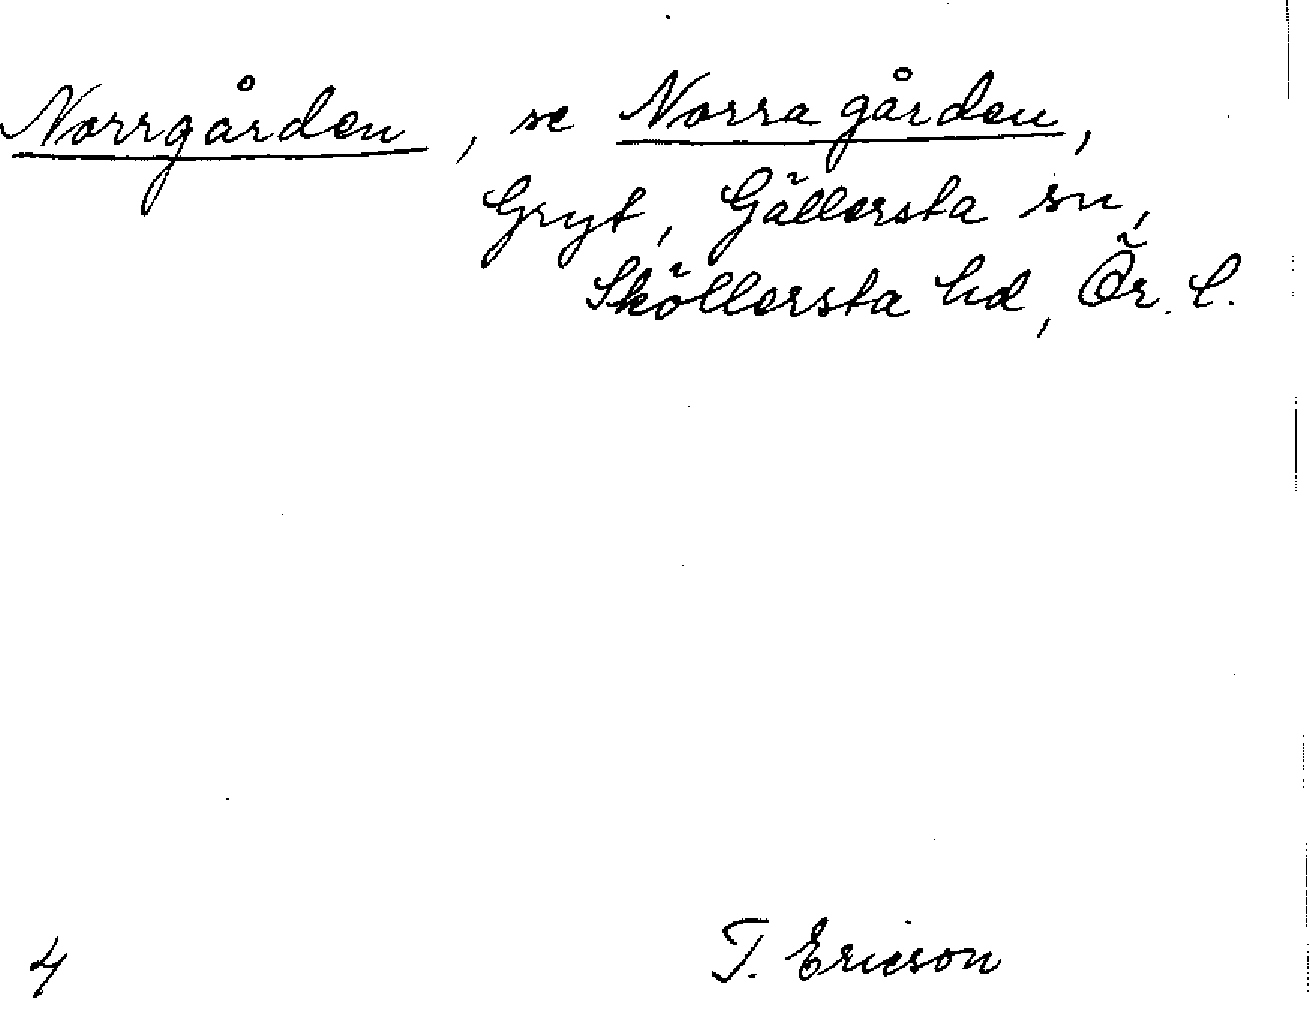 Norrgården, se Norra gården,
Gryt, Gällersta sn,
Sköllersta hd, Ör. l.
4
T. Ericson